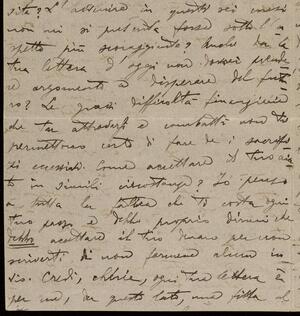 vita? L' attendere in questi sei mesi
non mi si presenta forse sotto l' a
spetto più scoraggiante? Anche dalla
tua lettera d' oggi non dovrei prende
re argomento a disperare del futu
ro? Le gravi difficoltà finanziarie
che tu attraversi e combatti non ti
permettono certo di fare dei sacrifizi
eccessivi. Come accettare il tuo aiu
to in simili circostanze? Io penso
a tutta la che ti costa ogni
tuo passo e debbo proprio dirmi che
debbo accettare il tuo denaro per non
scriverti di non farmene alcun in
vio. Credi, ogni tua lettera è
per me, da questo lato, una fitta al